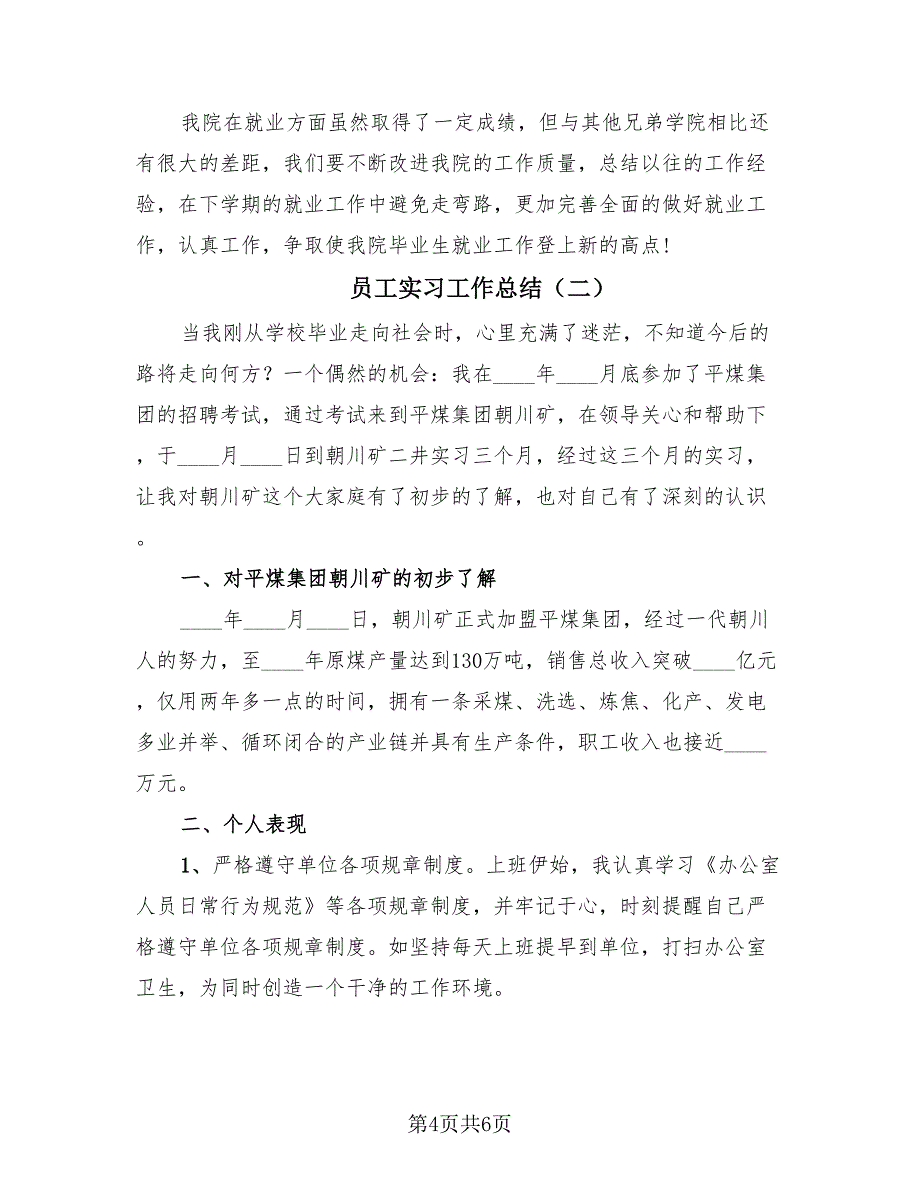 我院在就业方面虽然取得了一定成绩，但与其他兄弟学院相比还
有很大的差距，我们要不断改进我院的工作质量，总结以往的工作经
验，在下学期的就业工作中避免走弯路，更加完善全面的做好就业工
作，认真工作，争取使我院毕业生就业工作登上新的高点!
员工实习工作总结（二）
当我刚从学校毕业走向社会时，心里充满了迷茫，不知道今后的
路将走向何方？一个偶然的机会：我在____年____月底参加了平煤集
团的招聘考试，通过考试来到平煤集团朝川矿，在领导关心和帮助下
，于____月____日到朝川矿二井实习三个月，经过这三个月的实习，
让我对朝川矿这个大家庭有了初步的了解，也对自己有了深刻的认识
。
一、对平煤集团朝川矿的初步了解
____年____月____日，朝川矿正式加盟平煤集团，经过一代朝川
人的努力，至____年原煤产量达到130万吨，销售总收入突破____亿元
，仅用两年多一点的时间，拥有一条采煤、洗选、炼焦、化产、发电
多业并举、循环闭合的产业链并具有生产条件，职工收入也接近____
万元。
二、个人表现
1、严格遵守单位各项规章制度。上班伊始，我认真学习《办公室
人员日常行为规范》等各项规章制度，并牢记于心，时刻提醒自己严
格遵守单位各项规章制度。如坚持每天上班提早到单位，打扫办公室
卫生，为同时创造一个干净的工作环境。
第4页共6页